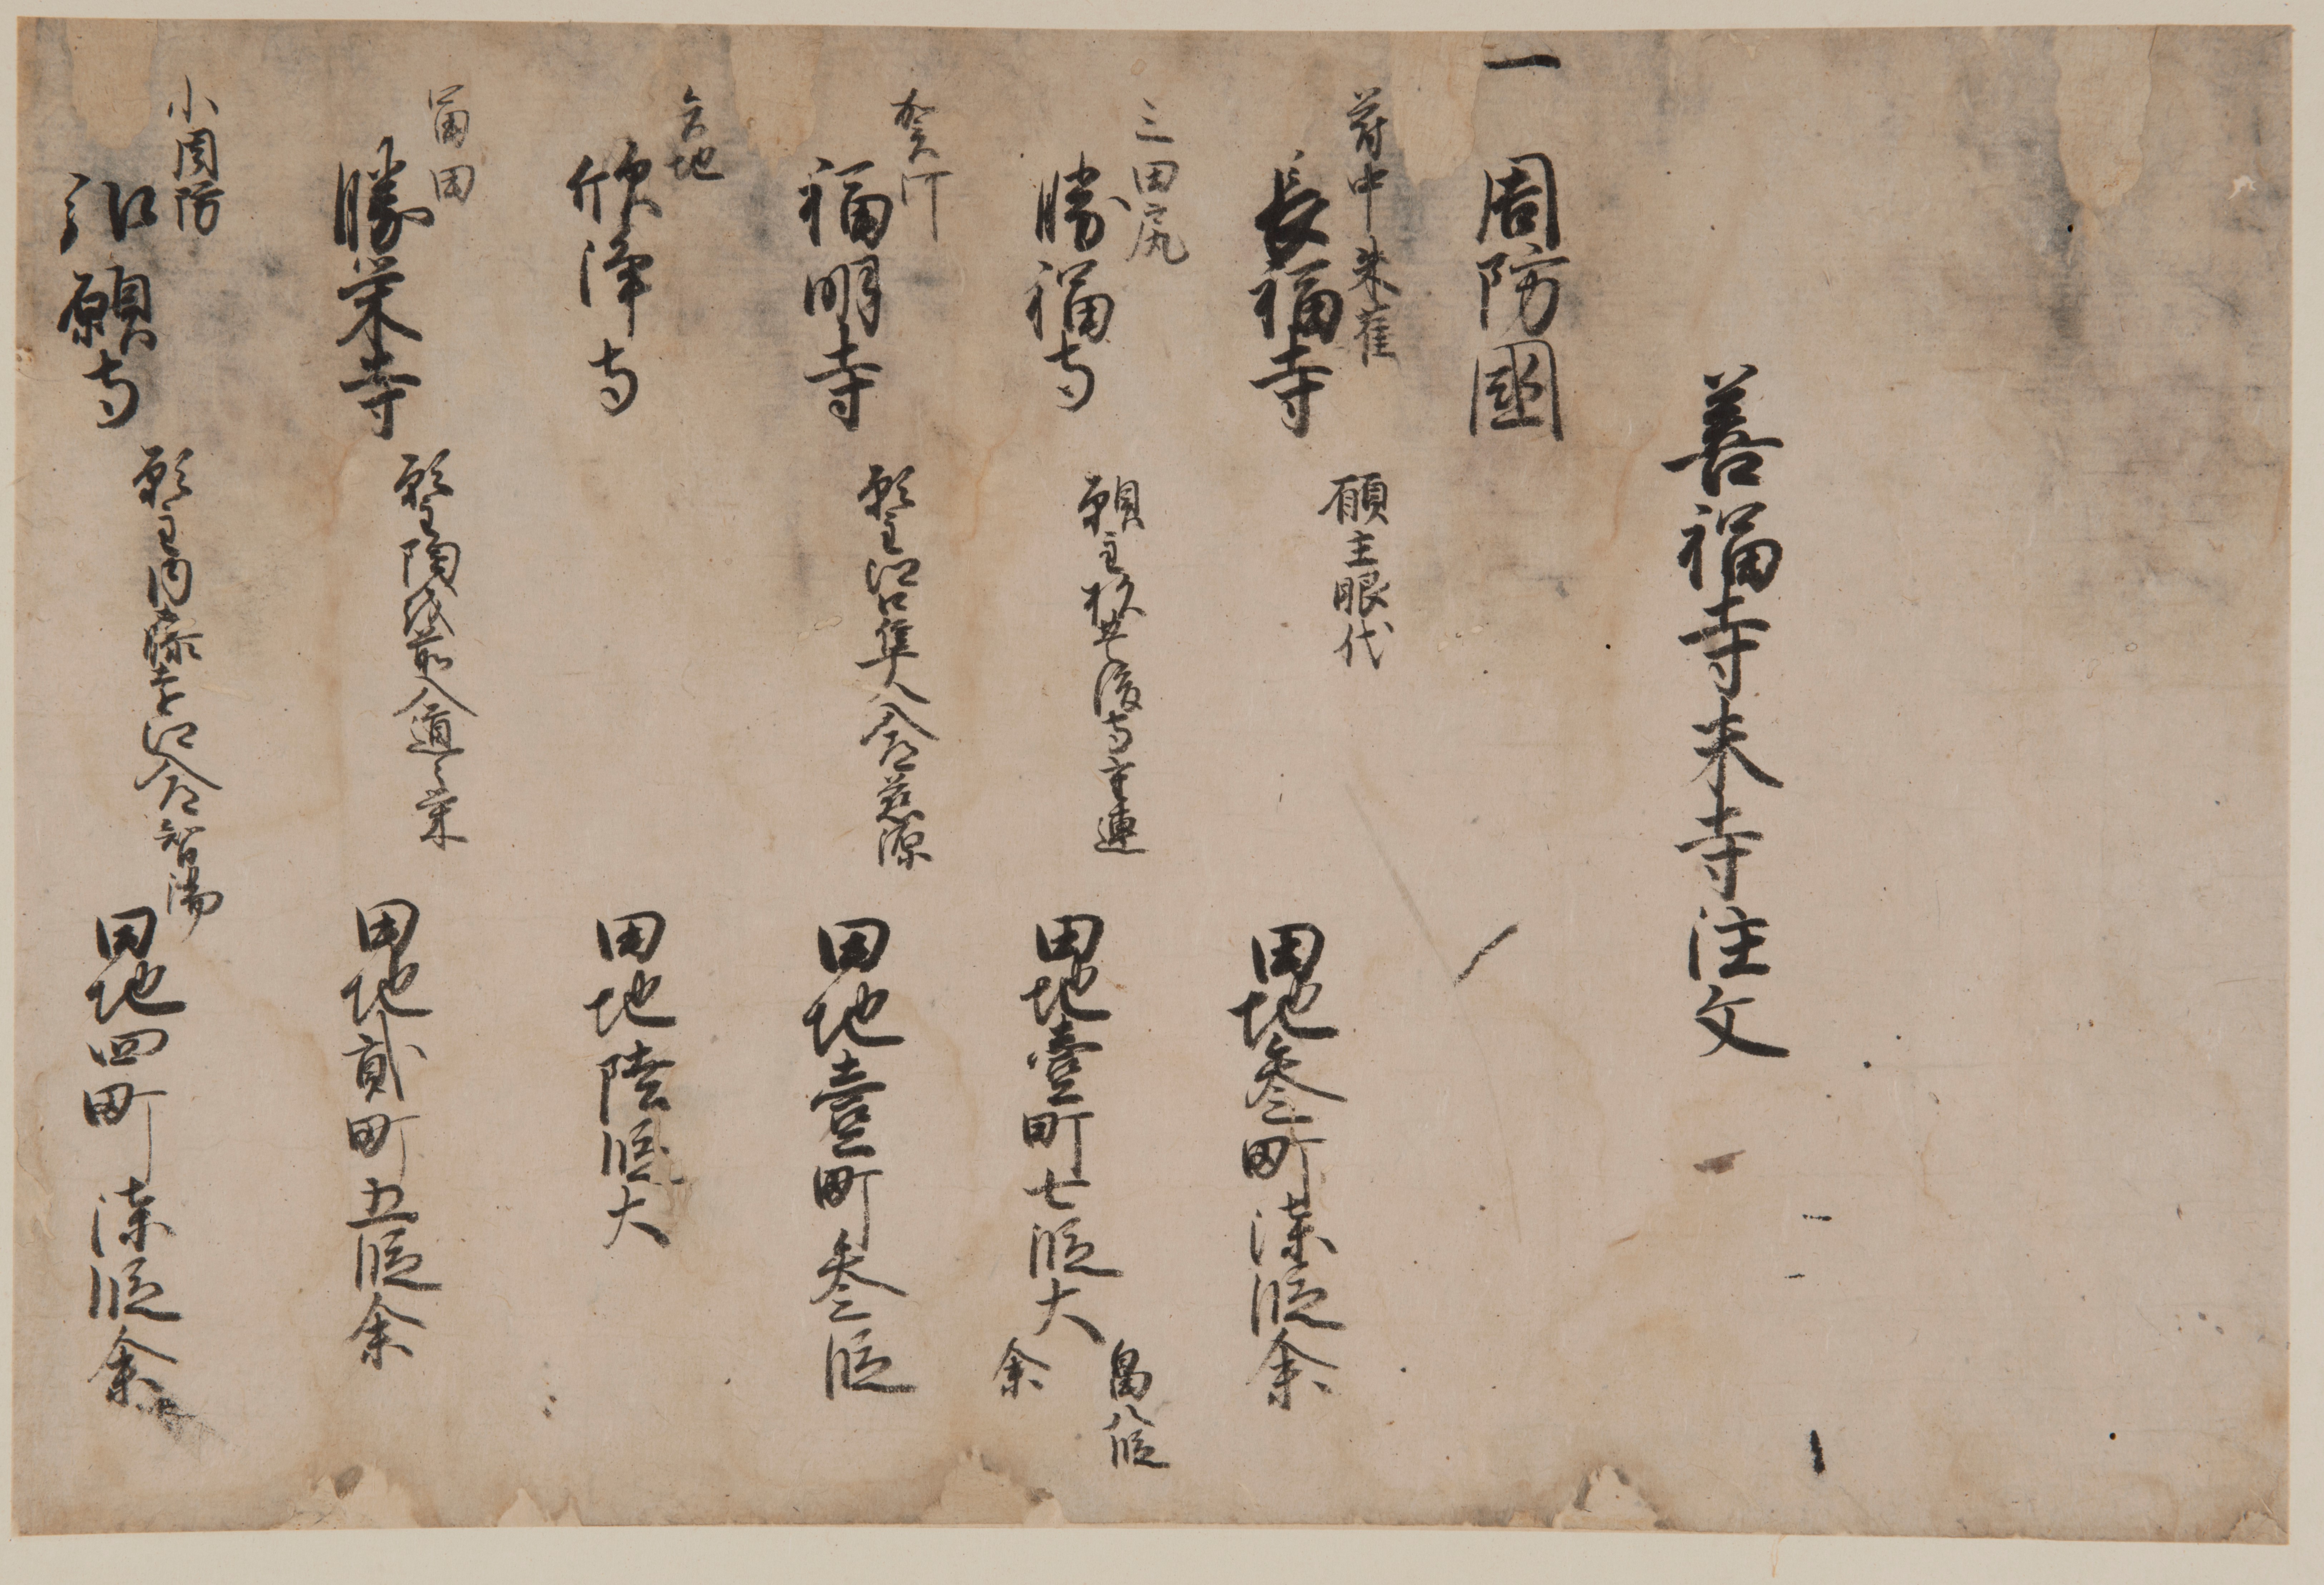 善福寺末寺注文
一 周防國
府中朱雀
長福寺 願主眼代 田地参町漆段余
三田尻
勝福寺 願主杉豊後守空連 田地壹町七段大余
畠八段
福明寺 願主沼隼人入道慈源 田地壹町参段
欣浄寺 田地陸段大
冨田
勝栄寺 願主陶越前入道々栄 田地貳町五段余
小周防
弘願寺 願主内藤 入道智陽 田地四町漆段余